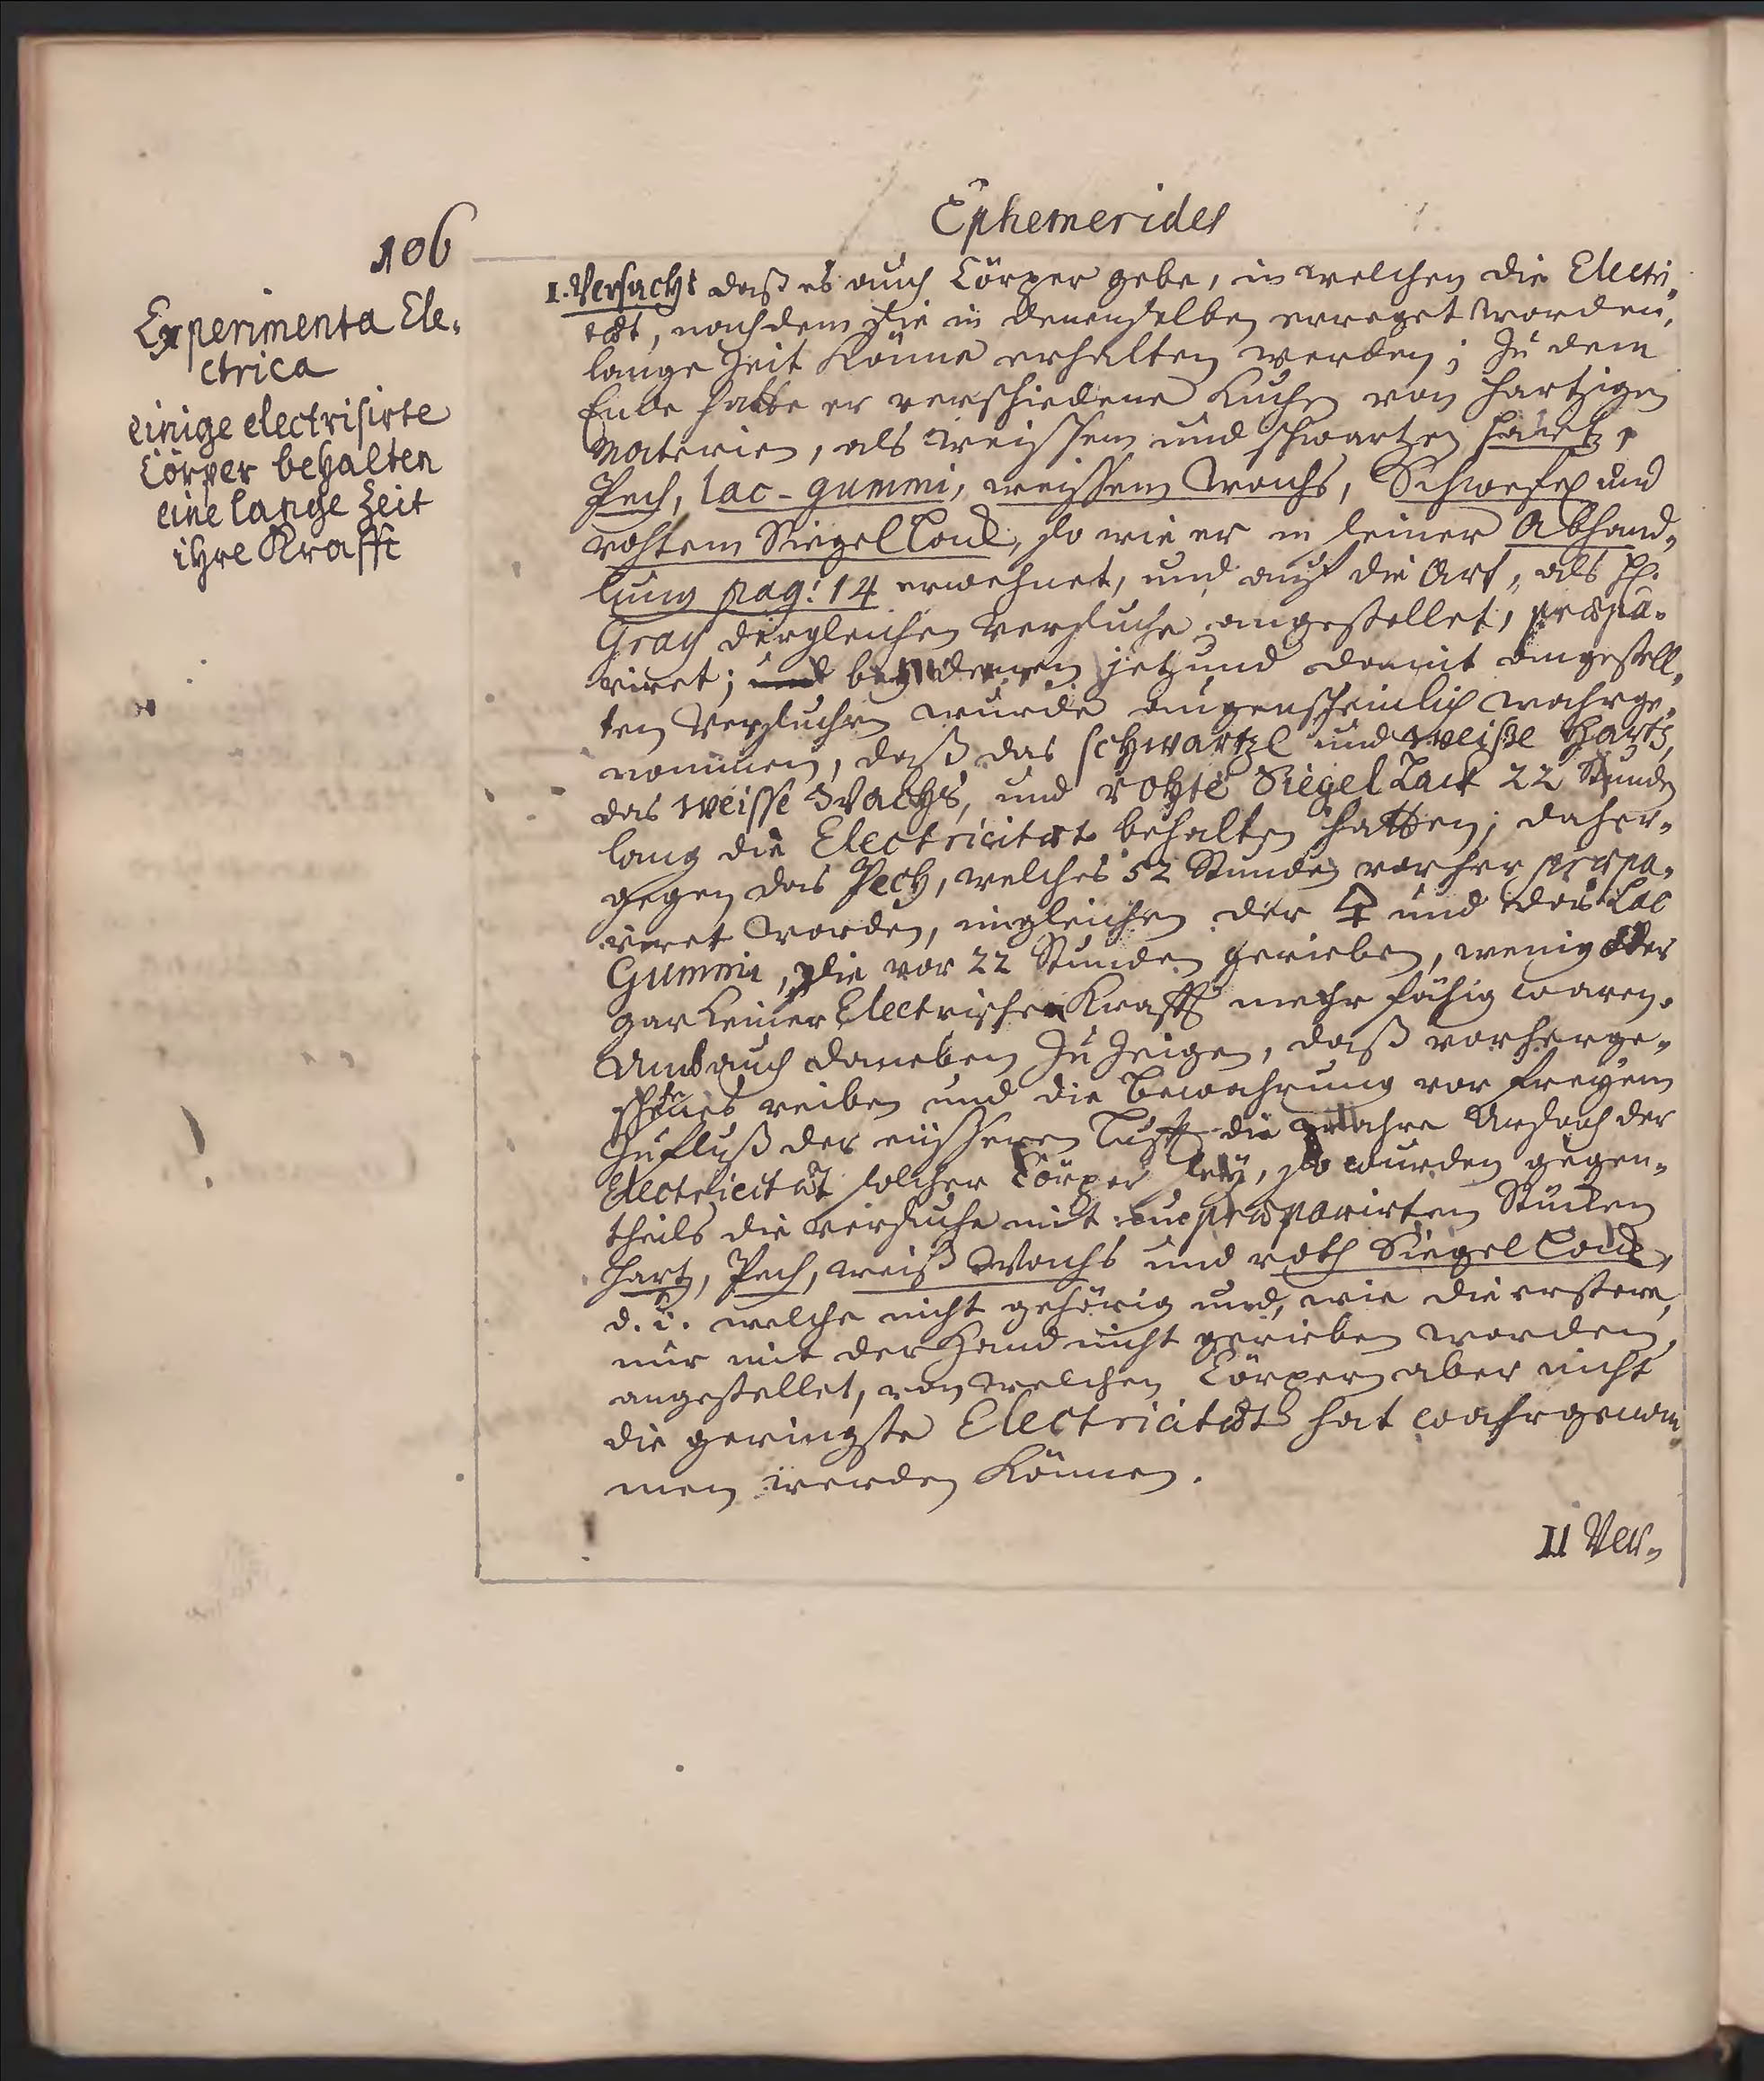 Ephemerides
106
Experimenta Ele„
ctrica
einige electrisirte
Cörper behalten
eine lange Zeit
ihre Krafft
I. Versucht daß es auch Cörper gebe, in welchen die Electri„
tæt, nachdem sie in denenselben erreget worden,
lange Zeit könne erhalten werden; Zu dem
Ende hatte er verschiedene Kuchen von hartzigen
Materien, als weissem und schwartzen Hartz,
Pech, lac-gummi, weissem Wachs, Schwefel und
rohtem Siegel Lack, so wie er in seiner Abhand„
lung pag: 14 erwehnet, und auf die Art, als H.
Gray dergleichen Versuche angestellet, præpa„
riret; und bey denen jetzund damit angestell„
ten Versuchen wurde augenscheinlich wahrge„
nommen, daß das schwartze und weisse Hartz,
das weisse Wachs, und rohte Siegel Lack 22 Stunden
lang die Electricitæt behalten hatten; daher„
gegen das Pech, welches 52 Stunden vorher præpa„
riret worden, ingleichen der 🜍 und das Lac
Gummi, die vor 22 Stunden gerieben, wenig oder
gar keiner Electrischen Krafft mehr fähig waren.
Umb auch daneben zu zeigen, daß vorherge„
reiben und die Bewahrung vor freyem
Zufluß der eüsseren Lufft die wahre Ursach der
Electricitæt solcher Cörper sey, so wurden gegen„
theils die Versuche mit præparirten Stücken
Hartz, Pech, weiß Wachs und roth Siegel Lack,
d. i. welche nicht gehörig und, wie die erstere,
nur mit der Hand nicht gerieben worden,
angestellet, von welchen Cörpern aber nicht
die geringste Electricitæt hat wahrgenom„
men werden können.
II Ver„